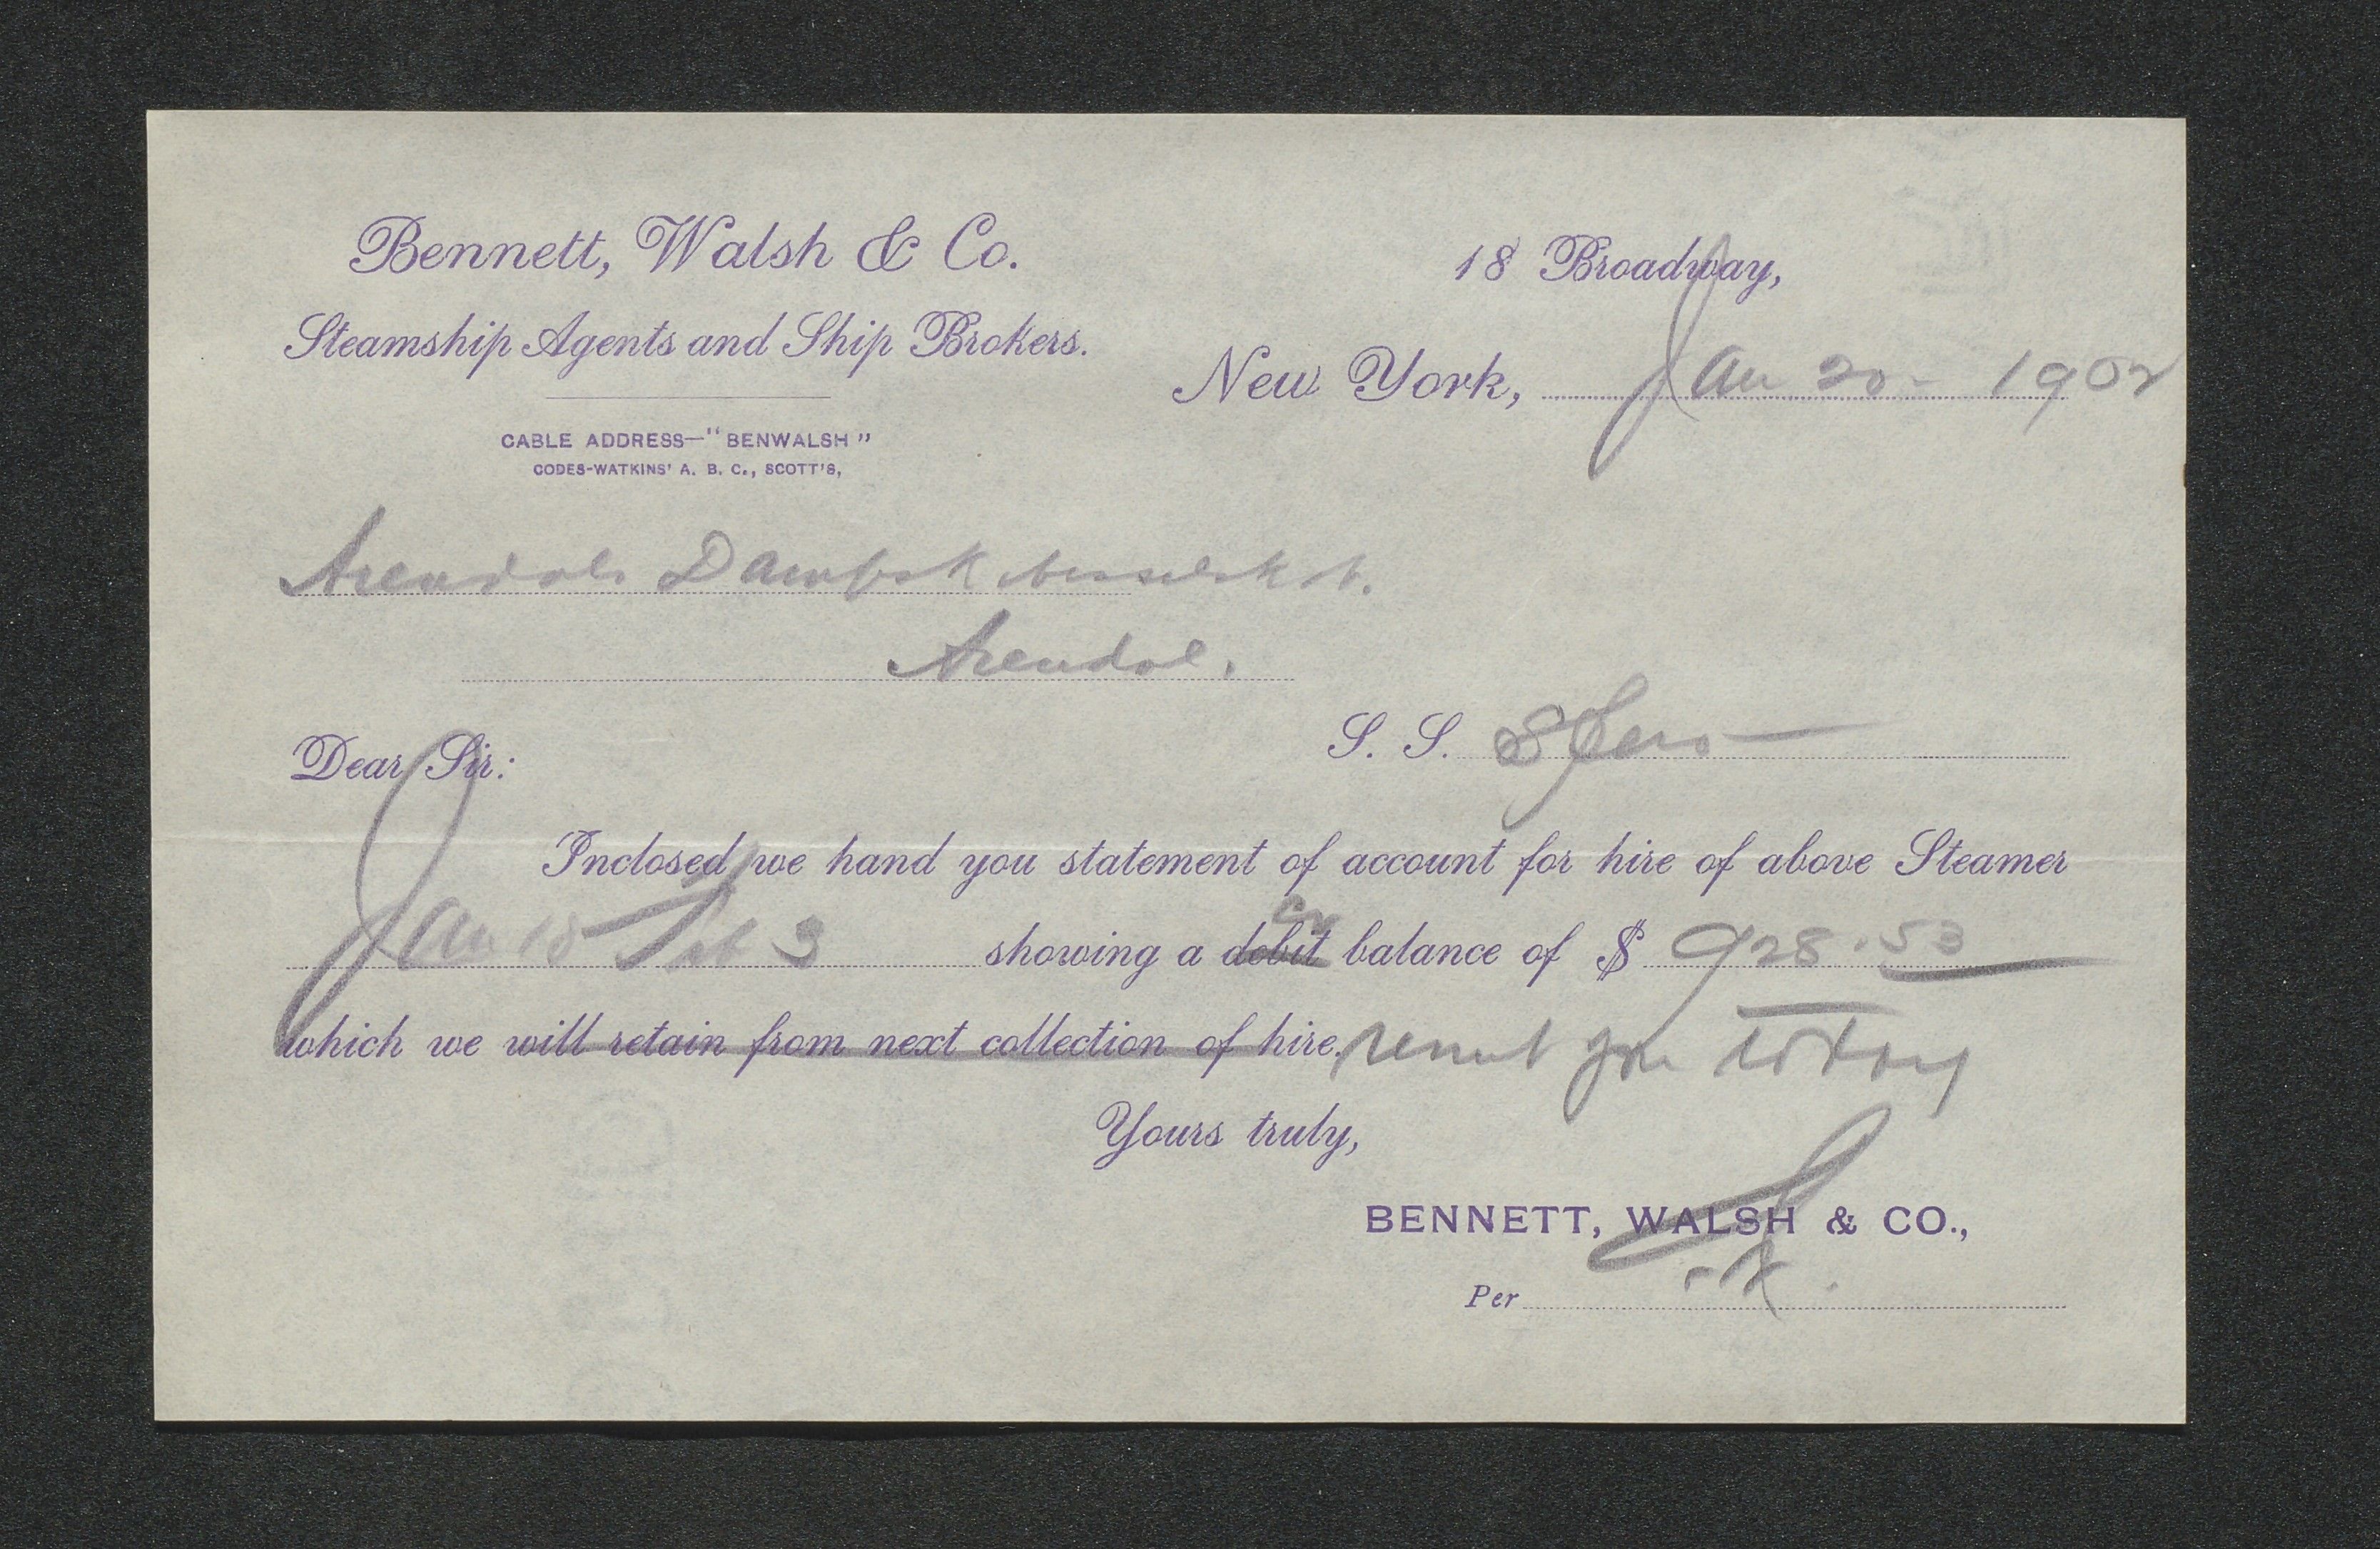 Bennett, Walsh & Co.
Steamship Agents and Ship Brokers.
CABLE ADDRESS—"BENWALSH"
CODES-WATKINS' A. B. C., SCOTT'S,
18 Broadway,
New York, Jan 20 - 1902
Arendals Dampsk
Arendal.
Dear Sir:
S. S.
Inclosed we hand you statement of account for hire of above Steamer
Jan 18 - Feb 3 showing a debit Cr balance of $ 928.53
which we will retain from next collection of hire. remit you today
Yours truly,
BENNETT, WALSH & CO.,
Per